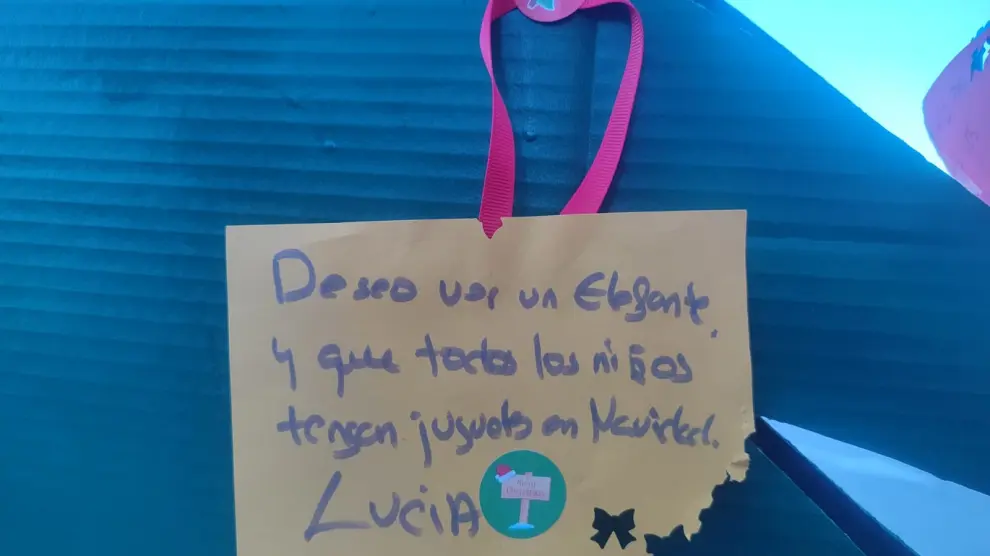 Deseo ver un Elefante
y que todos los niños
tengan juguetes en Navidad.
LUCIA
Merry
Christmas